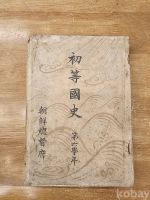 初等國史
第六學年
朝鮮總督府
kobay